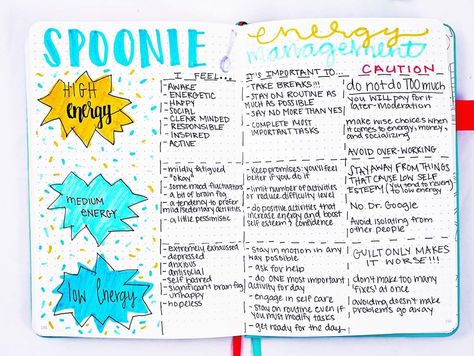 SPOONIE
energy
management
I FEEL...
IT IS IMPORTANT TO...
CAUTION
HIGH
energy
- AWAKE
- ENERGETIC
- HAPPY
- SOCIAL
- CLEAR MINDED
- RESPONSIBLE
- INSPIRED
- ACTIVE
- TAKE BREAKS!!!
- STAY ON ROUTINE AS
MUCH AS POSSIBLE
- SAY NO MORE THAN YES
- COMPLETE MOST
IMPORTANT TASKS
do not do TOO much
you WILL PAY for it
later - Moderation
make wise choices when
it comes to energy, money,
and socializing
AVOID OVER-WORKING
MEDIUM
ENERGY
- mildly fatigued
- "okay"
- some mood fluctuations
- a bit of brain fog
- a tendency to prefer
mid/sedentary activities
- a little pessimistic
- keep promises: you'll feel
better if you do it
- limit number of activities
or reduce difficulty level
- do positive activities that
increase energy and boost
self esteem & confidence
STAY AWAY FROM THINGS
THAT CAUSE LOW SELF
ESTEEM (you tend to revert)
to low energy
No Dr. Google
Avoid isolating from
other people
low Energy
- Extremely exhausted
- depressed
- anxious
- antisocial
- self hatred
- significant brain fog
- unhappy
- hopeless
- stay in motion in any
way possible
- ask for help
- do one most important
activity for day
- engage in self care
- stay on routine even if
you must modify tasks
- get ready for the day
GUILT ONLY MAKES
IT WORSE!!!
don't make too many
'fixes' at once
avoiding doesn't make
problems go away